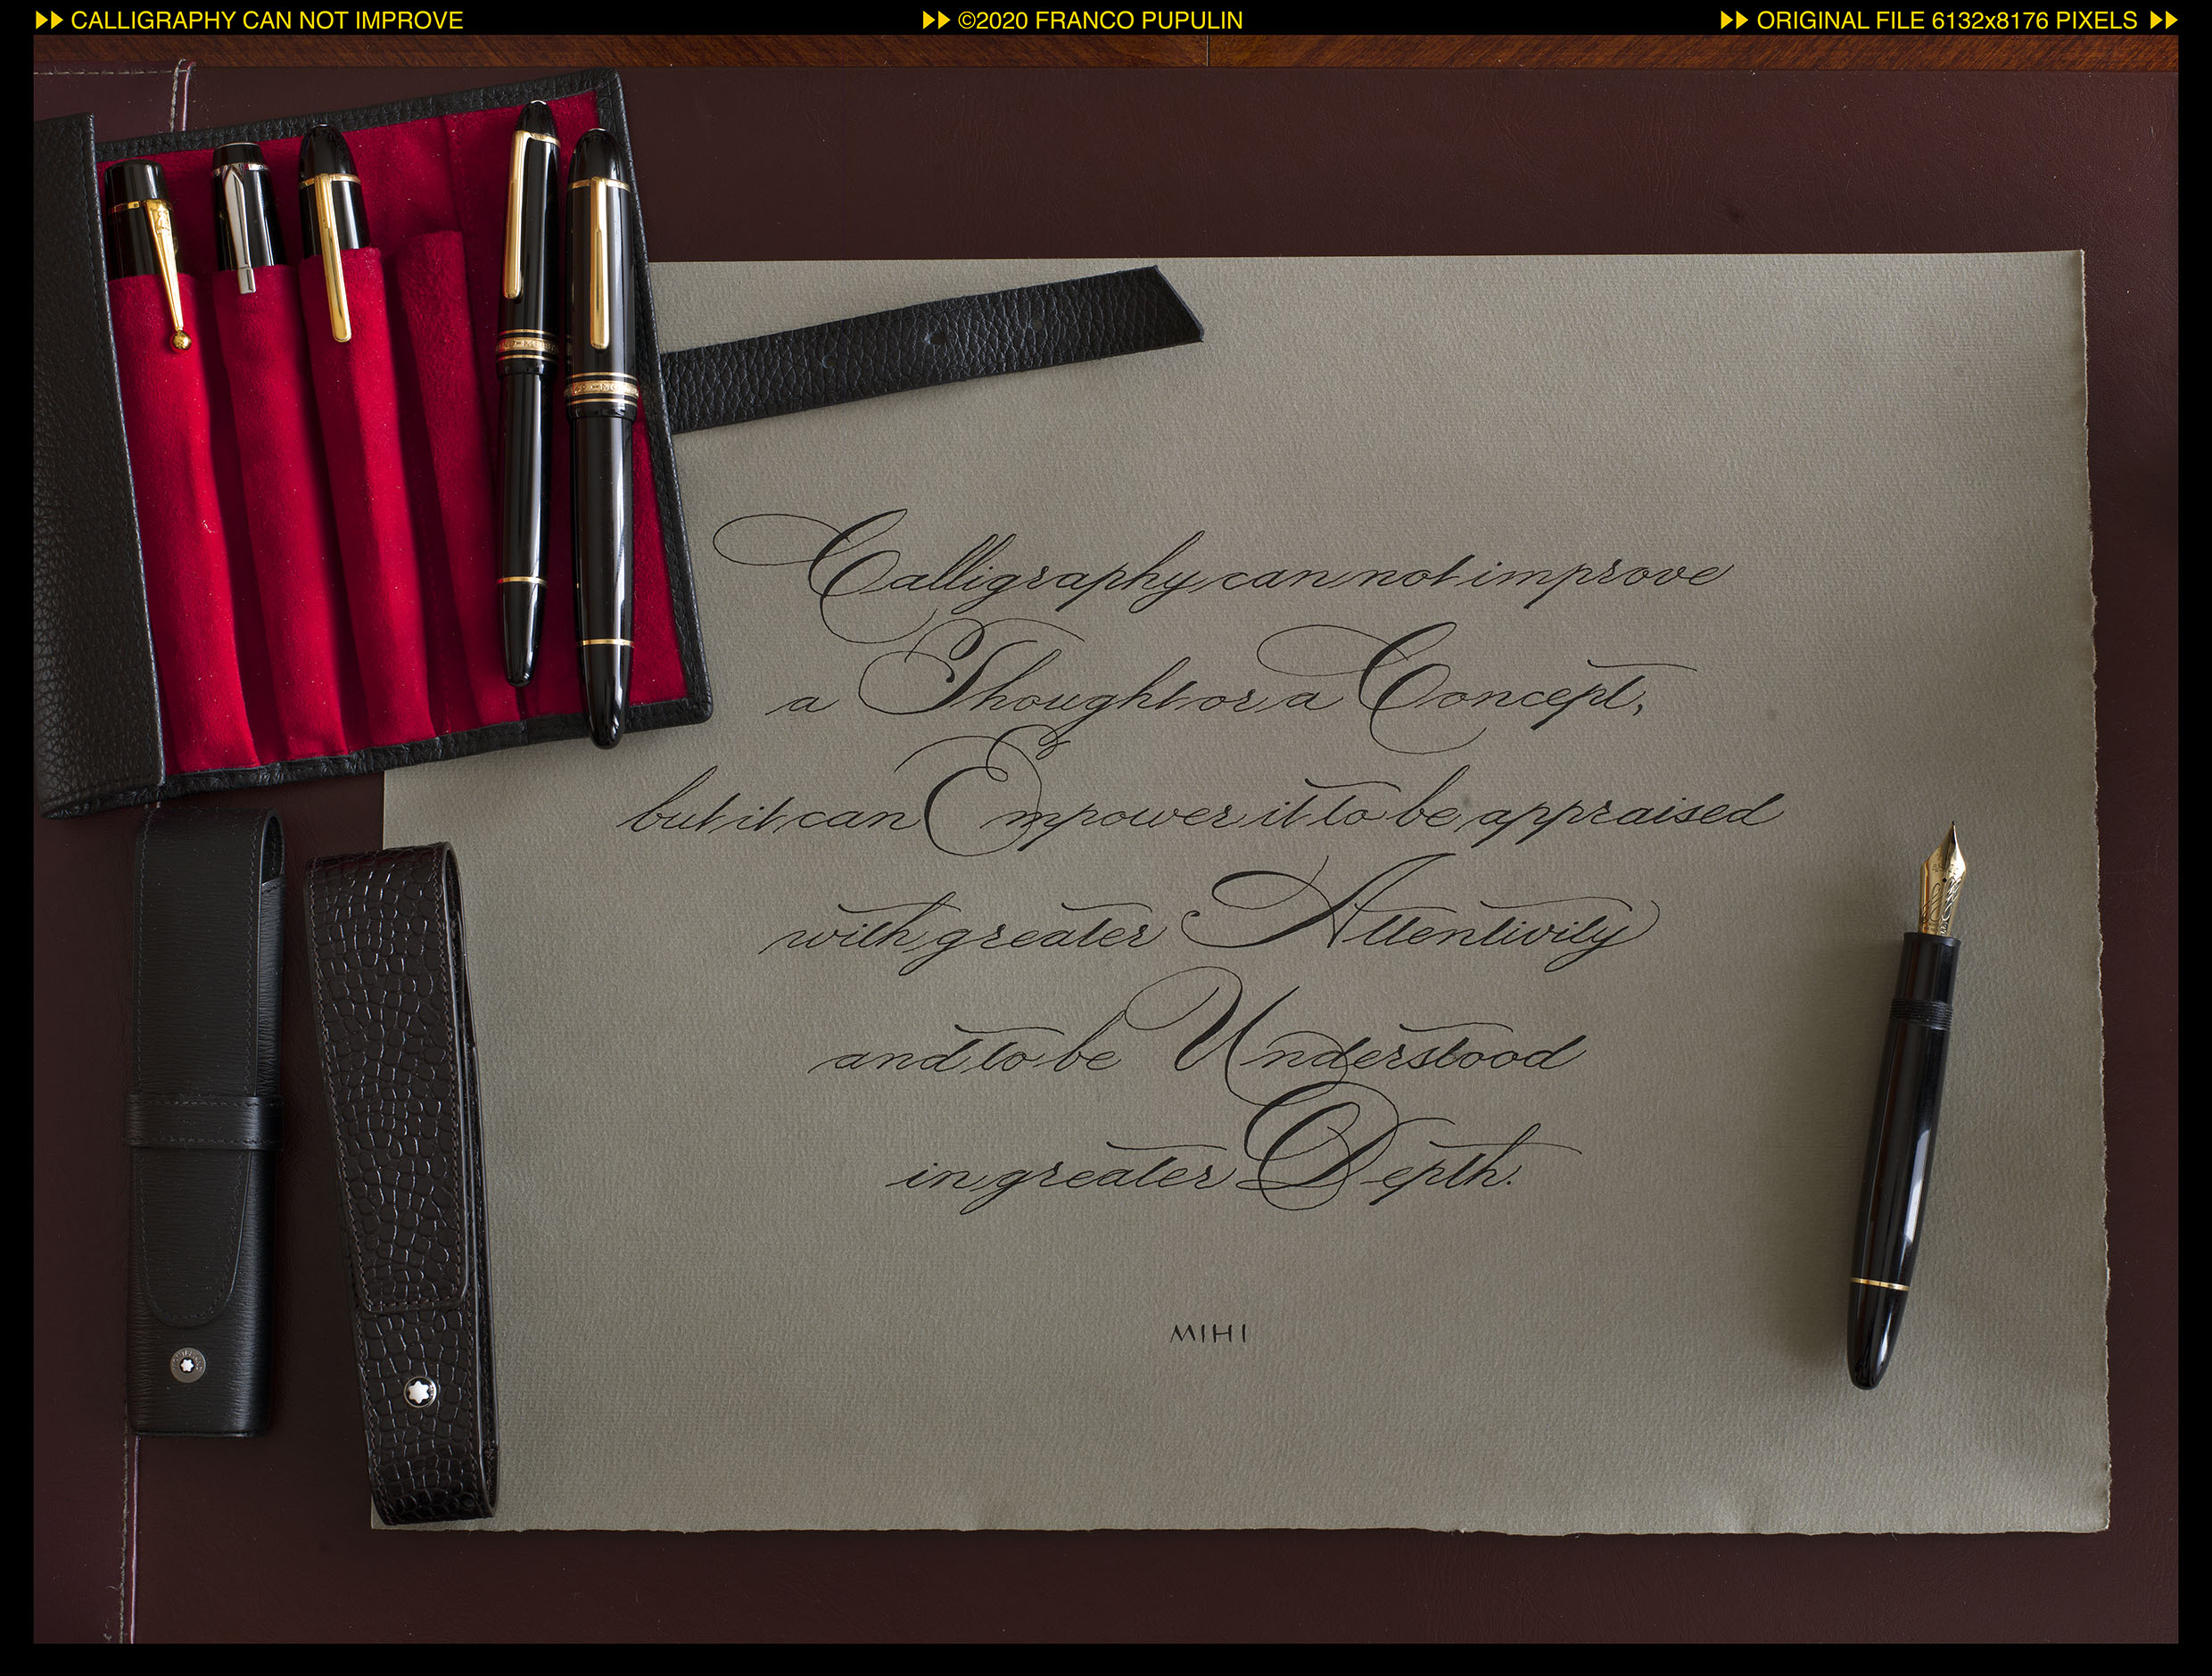 CALLIGRAPHY CAN NOT IMPROVE
©2020 FRANCO PUPULIN
ORIGINAL FILE 6132x8176 PIXELS
Calligraphy can not improve
a Thought or a Concept,
but it can Empower it to be appraised
with greater Attentivity
and to be Understood
in greater Depth.
MIHI